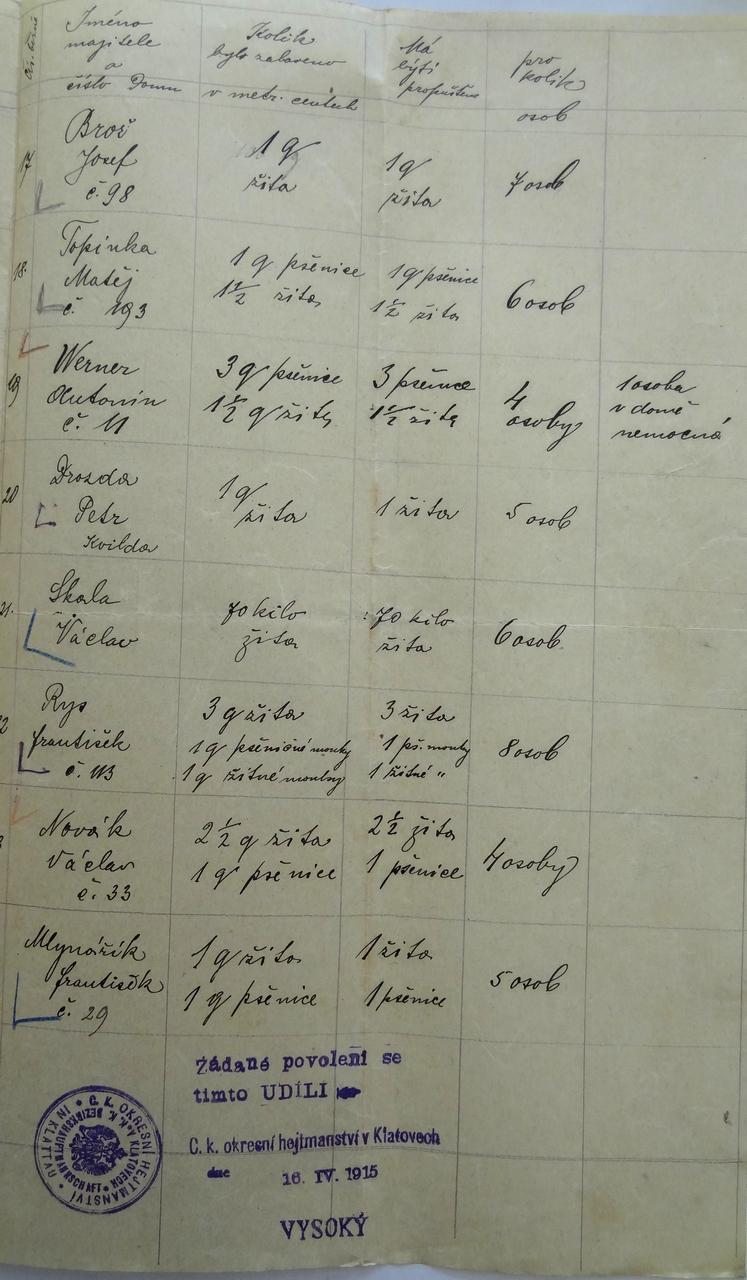 Čís. běžné
Jméno
majitele
a
číslo Domu
Kolik
bylo zabaveno
v metr. centech
Má
býti
propuštěno
pro
kolik
osob
17
Brož
Josef
č. 98
1 q
žita
1 q
žita
7 osob
18.
Topinka
Matěj
č. 193
1 q pšenice
1 1/2 žita
1 q pšenice
1 1/2 žita
6 osob
19
Werner
Antonín
č. 11
3 q pšenice
1 1/2 q žita
3 pšenice
1 1/2 žita
4
osoby
1 osoba
v domě
nemocná
20
Drozda
Petr
Kvilda
1 q
žita
1 žita
5 osob
21.
Skala
Václav
70 kilo
žita
70 kilo
žita
6 osob
2
Rys
František
č. 113
3 q žita
1 q pšeničné mouky
1 q žitné mouky
3 žita
1 pš. mouky
1 žitné "
8 osob
Novák
Václav
č. 33
2 1/2 q žita
1 q pšenice
2 1/2 žita
1 pšenice
4 osoby
Mlynářík
František
č. 29
1 q žita
1 q pšenice
1 žita
1 pšenice
5 osob
Žádané povolení se
timto UDÍLI
C. k. okresní hejtmanství v Klatovech
dne 16. IV. 1915
VYSOKÝ
C. K. OKRESNÍ HEJTMANSTVÍ V KLATOVECH
K. K. BEZIRKSHAUPTMANNSCHAFT IN KLATTAU